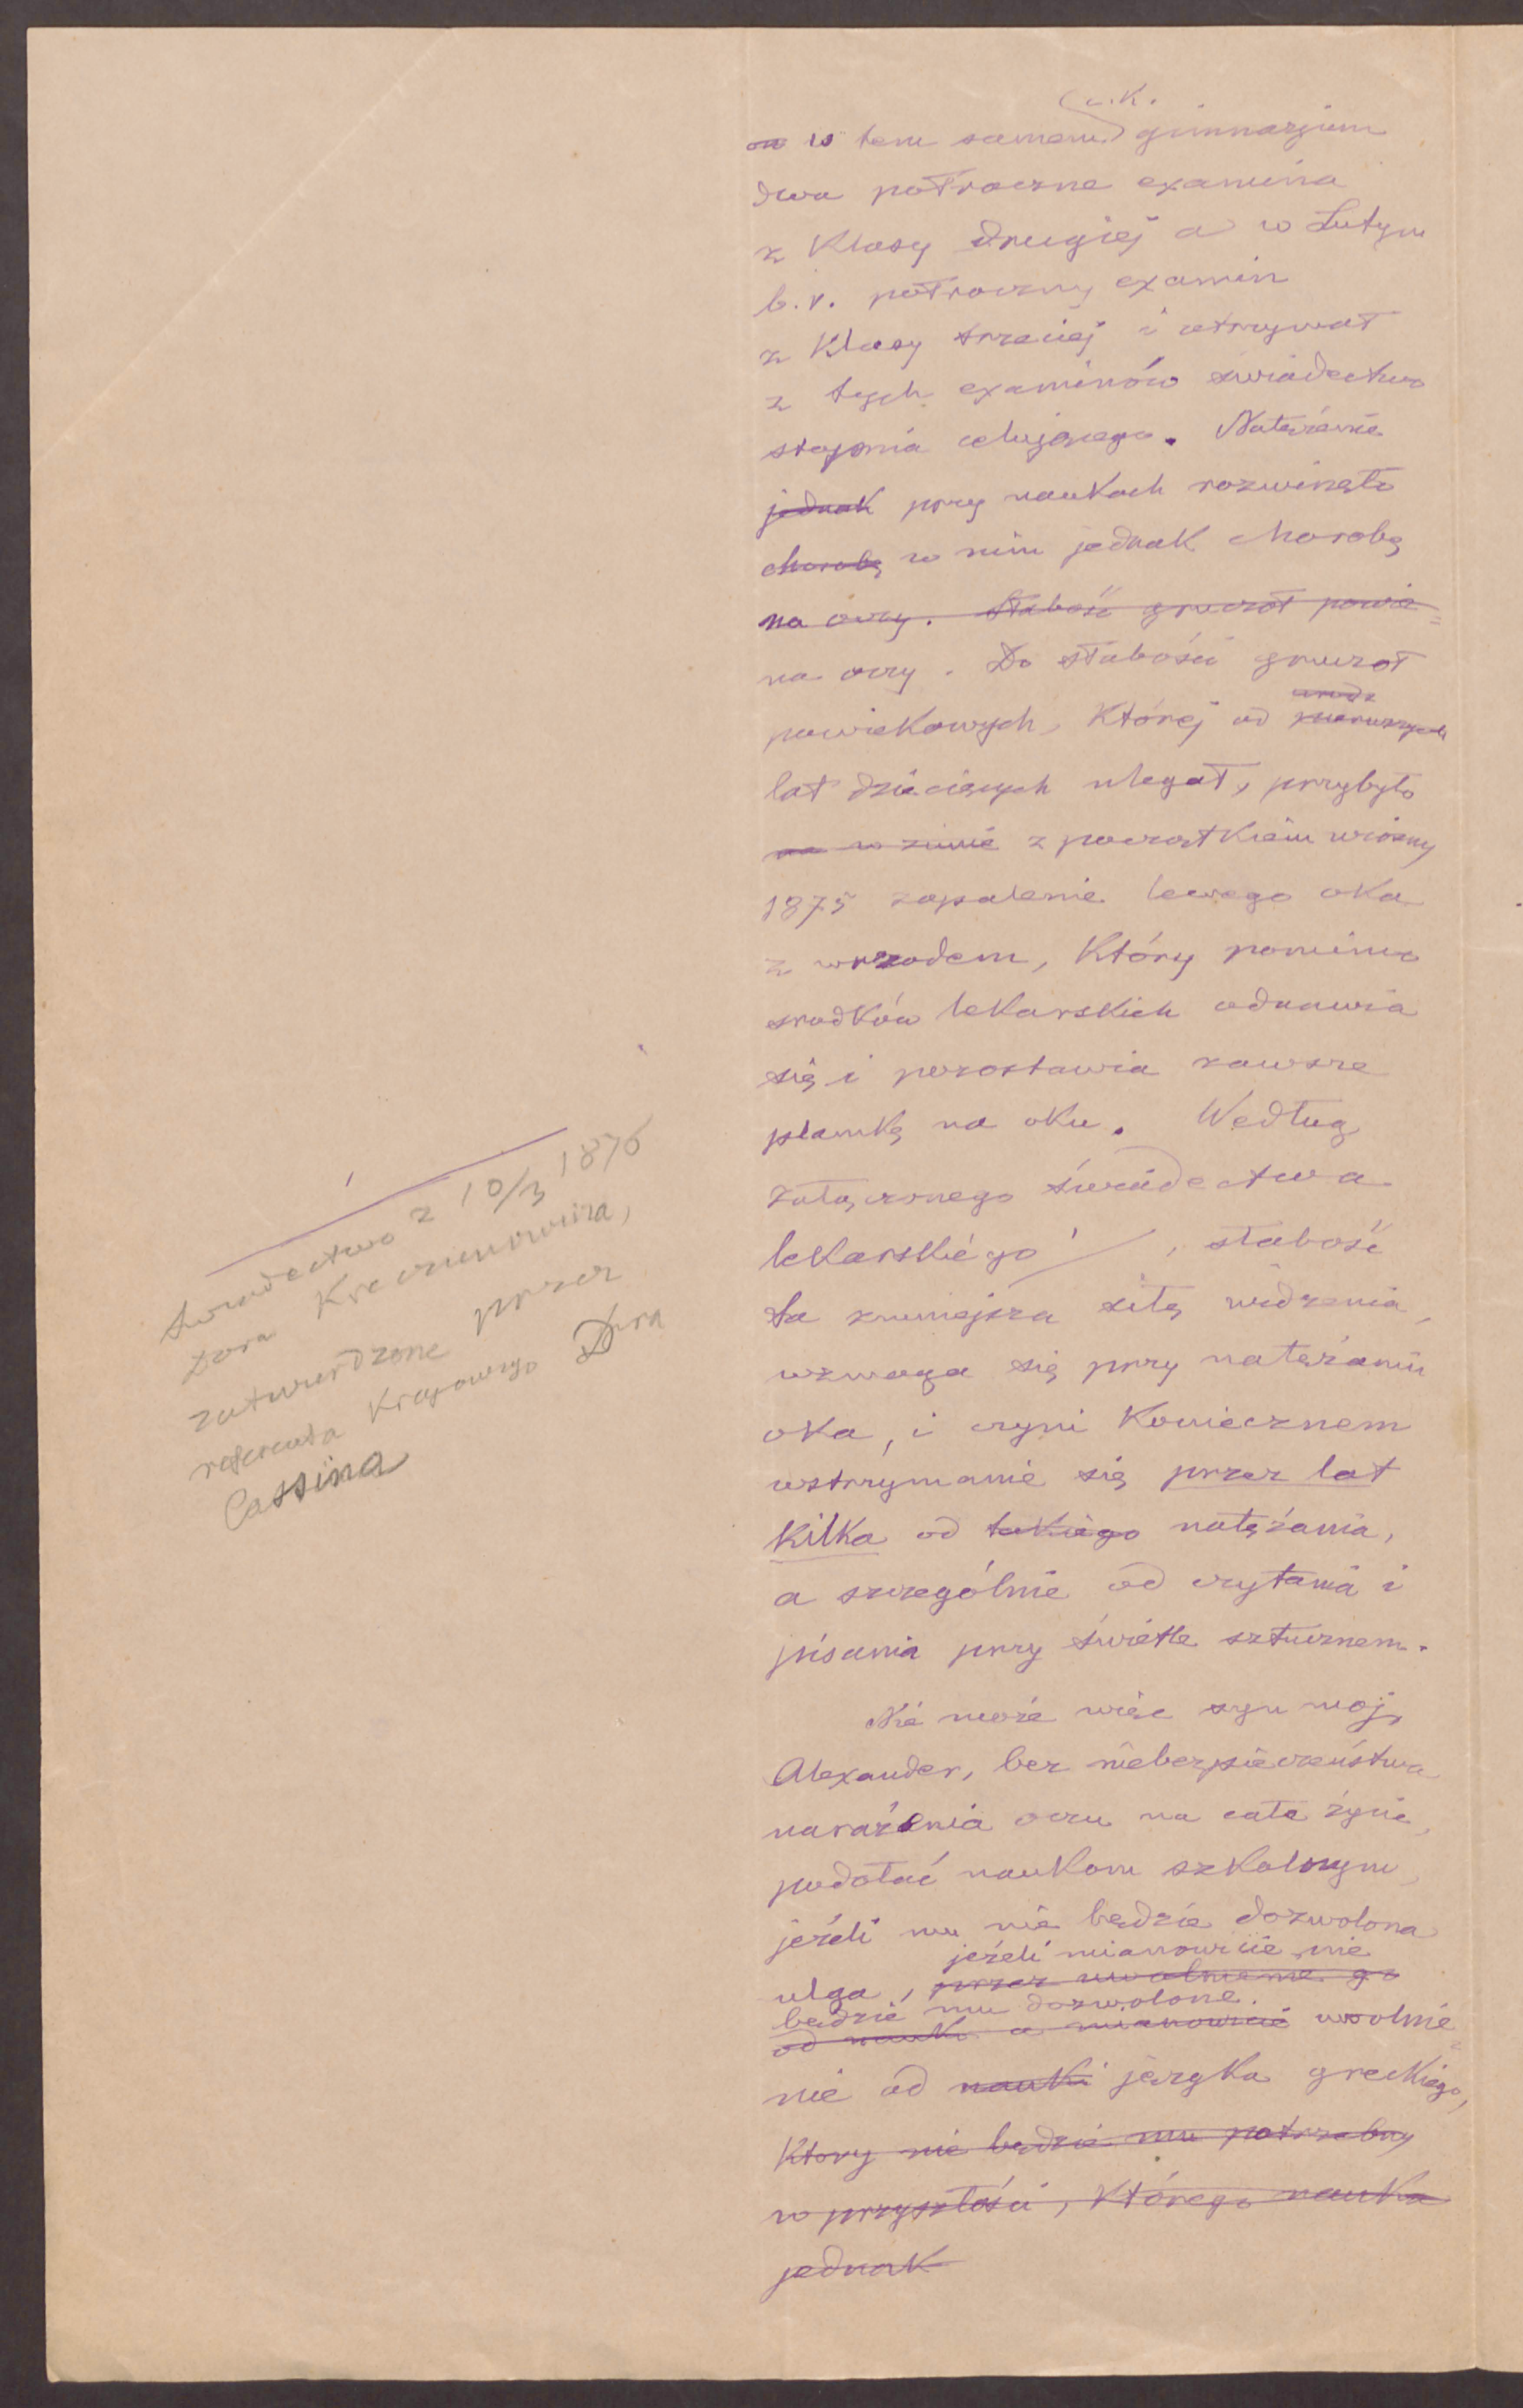 c.k.
on w tem samem gimnazjum
dwa półroczne examina
z Klasy drugiej a w Lutym
b.r. półroczny examin
z Klasy trzeciej i otrzymał
z tych examinów świadectwo
stopnia celującego. Natężenie
jednak przy naukach rozwinęło
chorobę w nim jednak chorobę
na oczy. Słabość gruczoł powie=
na oczy. Do słabości gruczoł
powiekowych, Której od pierwszych
lat dziecięcych ulegał, przybyło
na w zimie z początkiem wiosny
1875 zapalenie lewego oka
z wrzodem, Który pomimo
środków lekarskich odnawia
się i pozostawia zawsze
plamkę na oku. Według
załączonego świadectwa
lekarskiego /, słabość
ta zmniejsza siłę widzenia,
wzmaga się przy natężaniu
oka, i czyni Koniecznem
wstrzymanie się przez lat
Kilka od takiego natężania,
a szczególnie od czytania i
pisania przy świetle sztucznem.
Nie może więc syn moj,
Alexander, bez niebezpieczeństwa
narażenia oczu na całe życie,
podołać naukom szkolnym,
jeżeli mu nie będzie dozwolona
jeżeli mianowicie nie
ulga, przez uwolnienie go
będzie mu dozwolone.
od nauk a mianowicie uwolnie=
nie od nauki języka greckiego,
Ktory nie będzie mu potrzebny
w przyszłości, Którego nauka
jednak
świadectwo z 10/3 1876
Dora Kreczunowicza,
zatwierdzone przez
referenta Krajowego Dra
Cassina